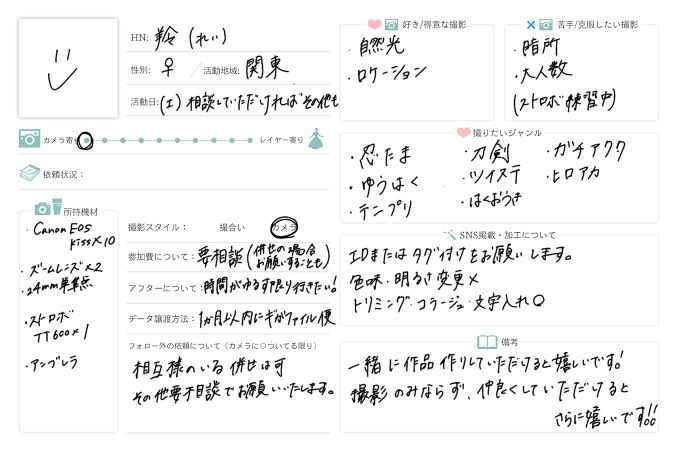 HN: 羚（れい）
性別: ♀ / 活動地域: 関東
活動日: (土) 相談していただければその他も
カメラ寄り レイヤー寄り
依頼状況：
所持機材
・Canon EOS
kiss×10
・ズームレンズ×2
・24mm単焦点
・ストロボ
TT600×1
・アンブレラ
撮影スタイル： 撮合い カメラ
参加費について：要相談（併せの場合
お願いすることも）
アフターについて：時間がゆるす限り行きたい!
データ譲渡方法：1か月以内にギガファイル便
フォロー外の依頼について（カメラに○ついてる限り）
相互様のいる併せは可
その他要相談でお願いいたします。
好き/得意な撮影
・自然光
・ロケーション
苦手/克服したい撮影
・暗所
・大人数
(ストロボ練習中)
撮りたいジャンル
・忍たま ・刀剣 ・ガチアクタ
・ゆうはく ・ツイステ ・ヒロアカ
・テニプリ ・はくおうき
SNS掲載・加工について
IDまたはタグ付けをお願いします。
色味・明るさ変更×
トリミング・コラージュ・文字入れ○
備考
一緒に作品作りしていただけると嬉しいです!
撮影のみならず、仲良くしていただけると
さらに嬉しいです!!